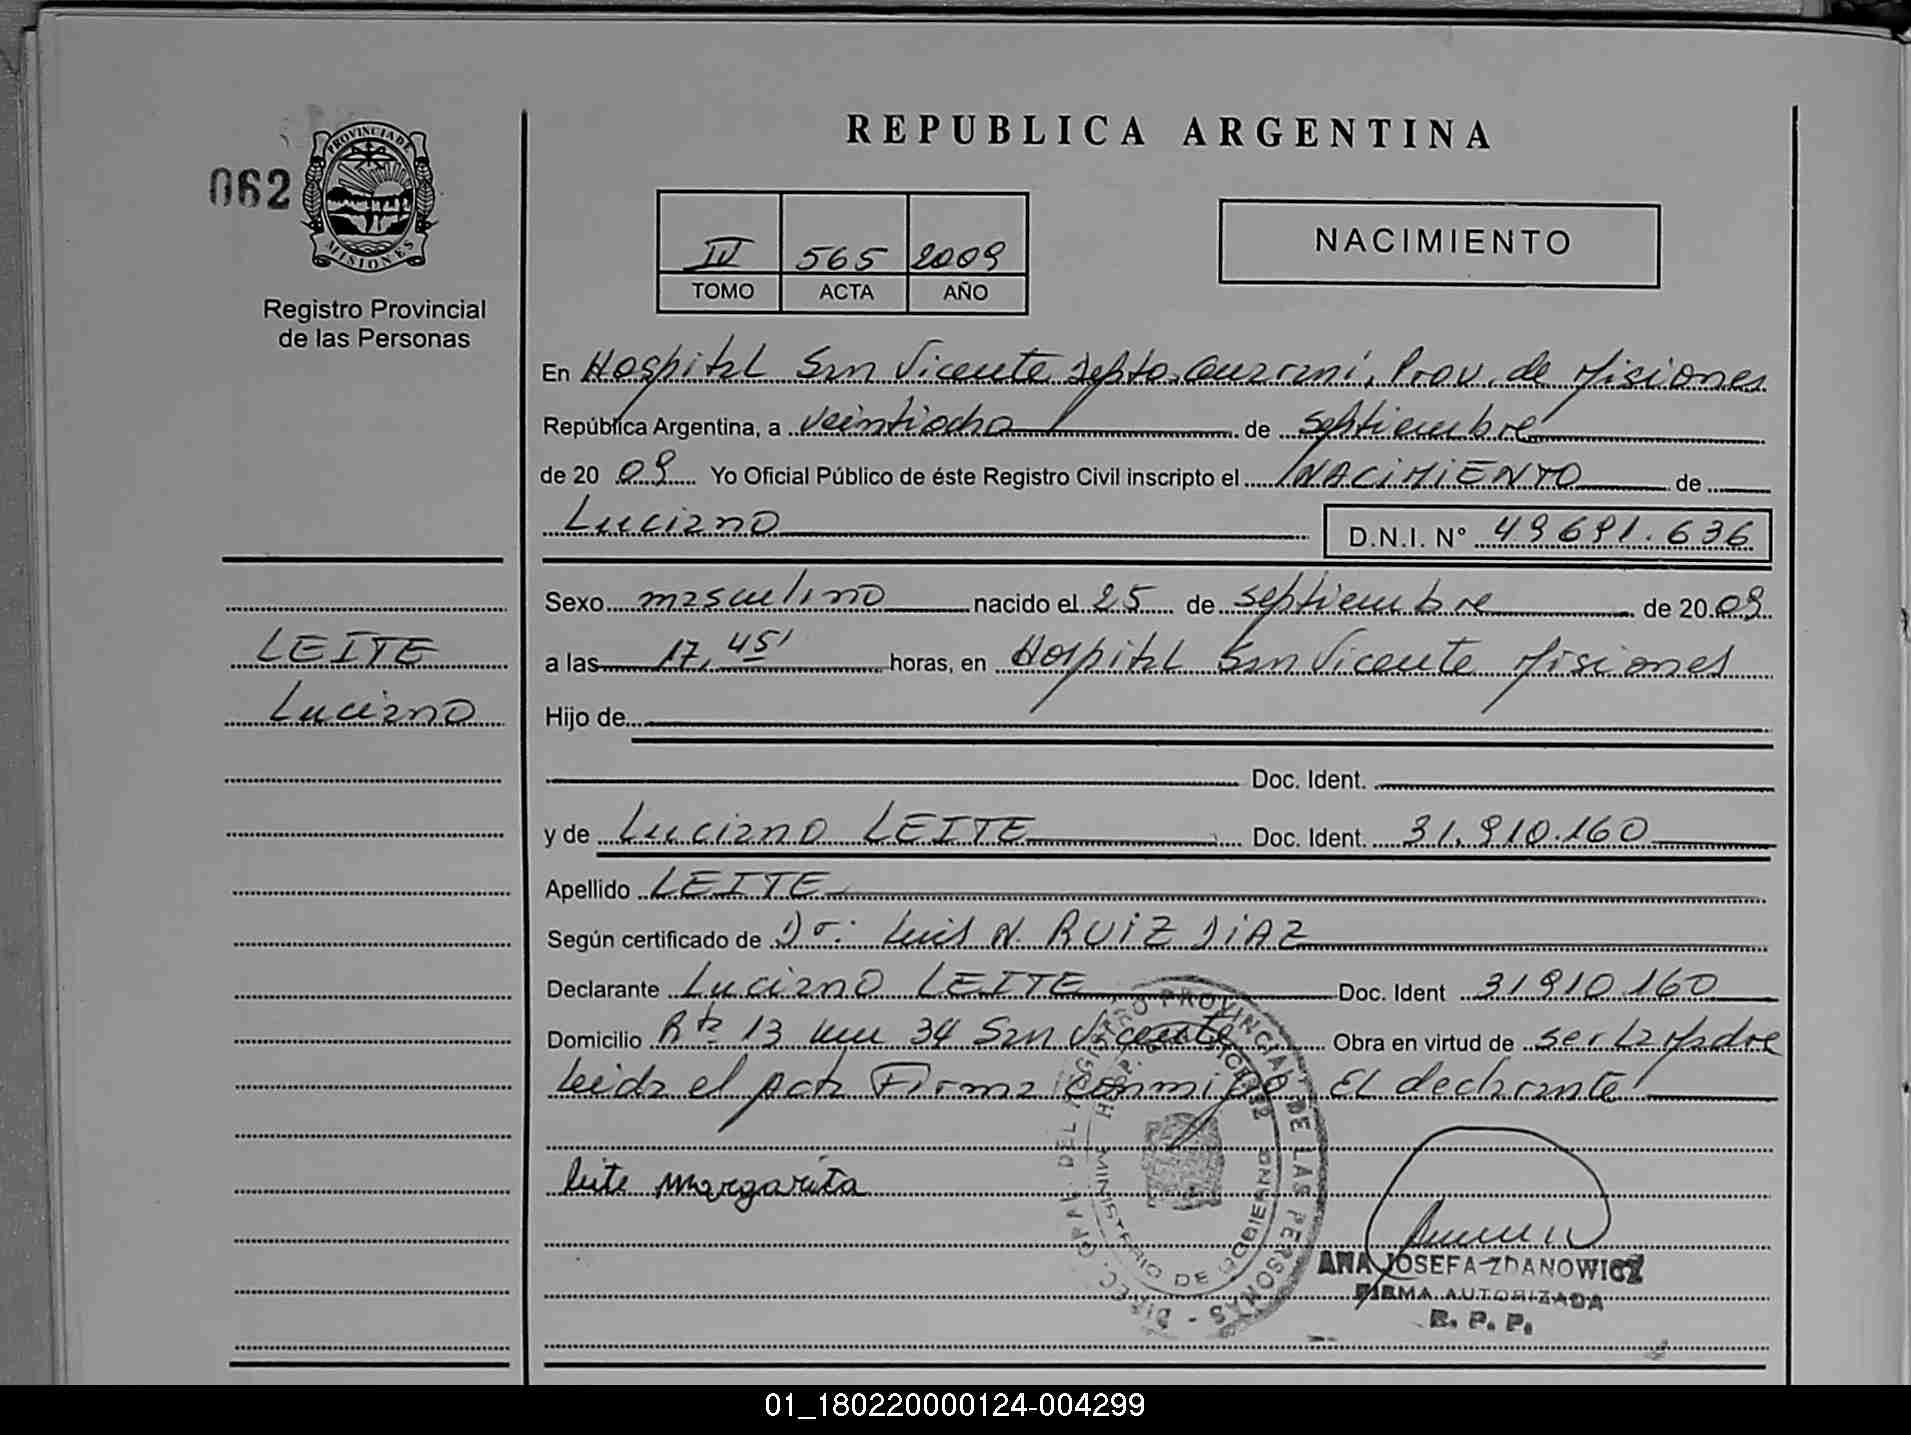 REPUBLICA ARGENTINA
062
PROVINCIA DE
MISIONES
Registro Provincial
de las Personas
IV 565 2009
TOMO ACTA AÑO
NACIMIENTO
En Hospital San Vicente Depto. Guaraní, Prov. de Misiones
República Argentina, a veintiocho de septiembre
de 20 09 Yo Oficial Público de éste Registro Civil inscripto el NACIMIENTO de
Luciano D.N.I. N° 49691.636
Sexo masculino nacido el 25 de septiembre de 20 09
LEITE
Luciano
a las 17,45' horas, en Hospital San Vicente Misiones
Hijo de
Doc. Ident.
y de Luciano LEITE Doc. Ident. 31.910.160
Apellido LEITE
Según certificado de Dr. Luis N. RUIZ DIAZ
Declarante Luciano LEITE Doc. Ident 31910.160
Domicilio Rta 13 km 34 San Vicente Obra en virtud de ser La Madre
Leida el Acta Firma conmigo El declarante
leite margarita
DIREC. GRAL. DEL REGISTRO PROVINCIAL DE LAS PERSONAS -
MINISTERIO DE GOBIERNO
ANA JOSEFA ZDANOWICZ
FIRMA AUTORIZADA
R. P. P.
01_180220000124-004299